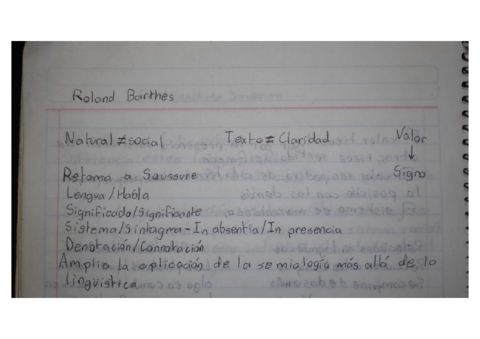 Roland Barthes
Natural ≠ social Texto ≠ Claridad Valor
↓
Retoma a Saussure Signo
Lengua/Habla
Significado/Significante
Sistema/Sintagma - In absentia/In presencia
Denotación/Connotación
Amplia la aplicación de la semiología más allá de lo
lingüística